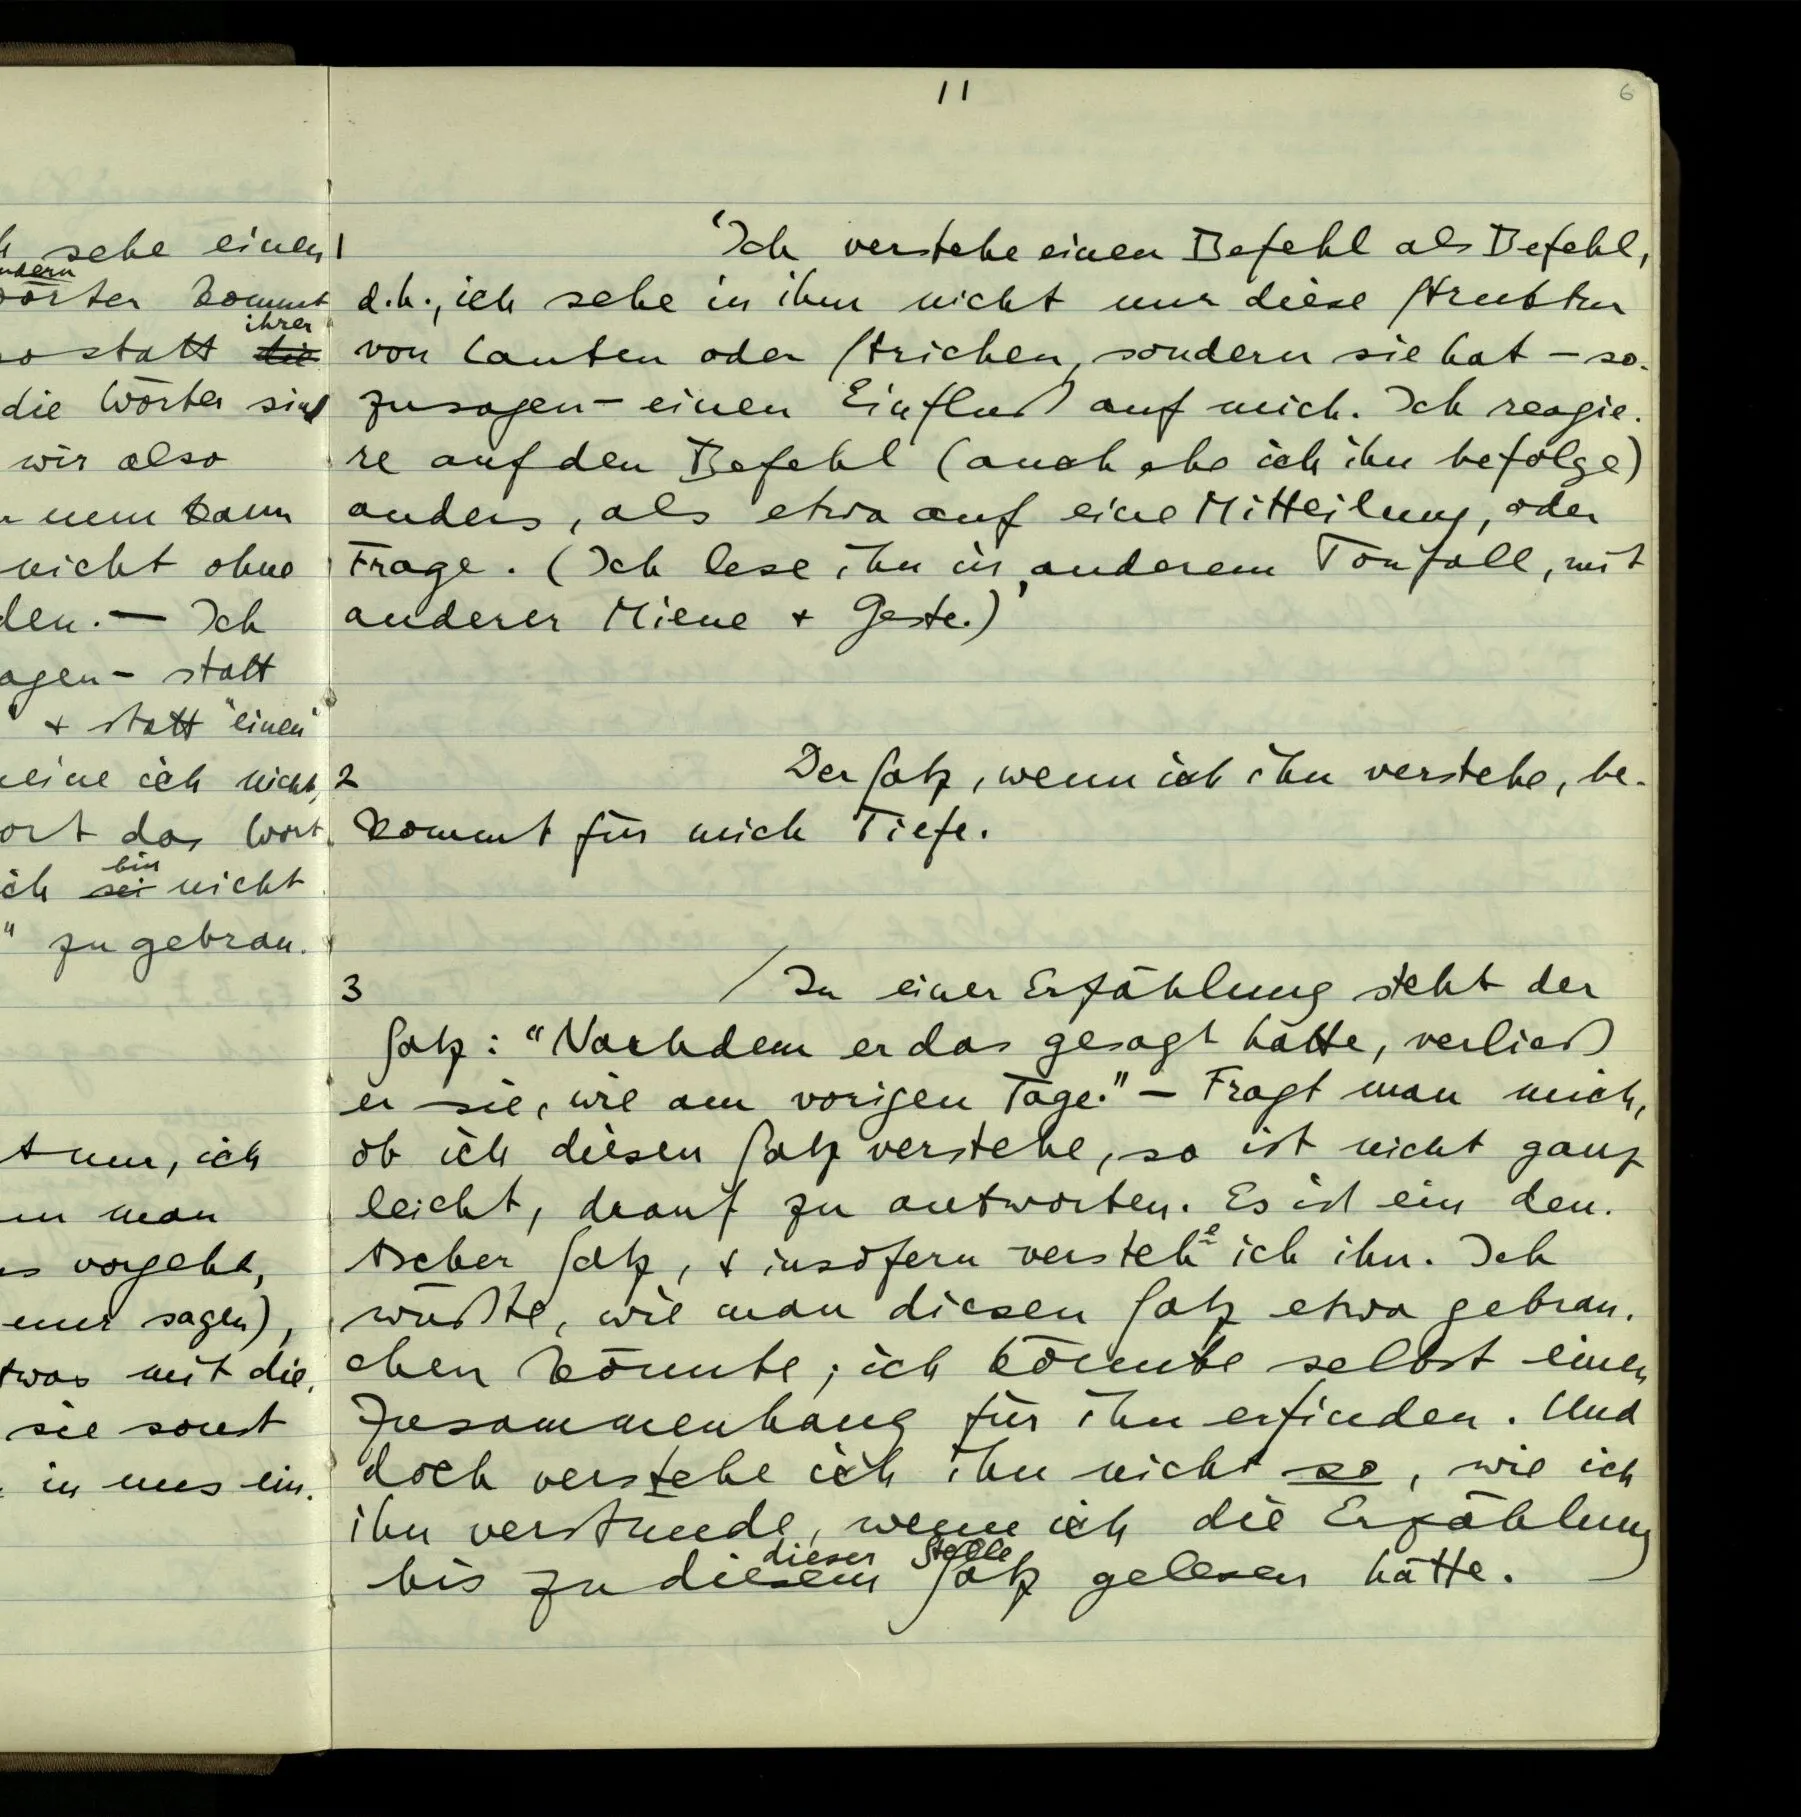 11
6
sehe einen
ndern
örter kommt
ihrer
so statt die
die Wörter sind
wir also
kann
nicht ohne
den. — Ich
agen – statt
" + statt "einen"
meine ich nicht,
ort das Wort
bin
ich sei nicht
" zu gebrau-
nun, ich
man
es vorgeht,
nur sagen),
etwas mit die-
sie sonst
in uns ein.
1 'Ich verstehe einen Befehl als Befehl,
d.h., ich sehe in ihm nicht nur diese Struktur
von Lauten oder Strichen, sondern sie hat – so-
zusagen – einen Einfluß auf mich. Ich reagie-
re auf den Befehl (auch ehe ich ihn befolge)
anders, als etwa auf eine Mitteilung, oder
Frage. (Ich lese ihn in anderem Tonfall, mit
anderer Miene + Geste.)'
2 Der Satz, wenn ich ihn verstehe, be-
kommt für mich Tiefe.
3 / In einer Erzählung steht der
Satz: "Nachdem er das gesagt hatte, verließ
er sie, wie am vorigen Tage." – Fragt man mich,
ob ich diesen Satz verstehe, so ist nicht ganz
leicht, drauf zu antworten. Es ist ein deu-
tscher Satz, + insofern verstehe ich ihn. Ich
wüßte, wie man diesen Satz etwa gebrau-
chen könnte; ich könnte selbst einen
Zusammenhang für ihn erfinden. Und
doch verstehe ich ihn nicht so, wie ich
ihn verstünde, wenn ich die Erzählung
dieser Stelle
bis zu diesem Satz gelesen hätte.